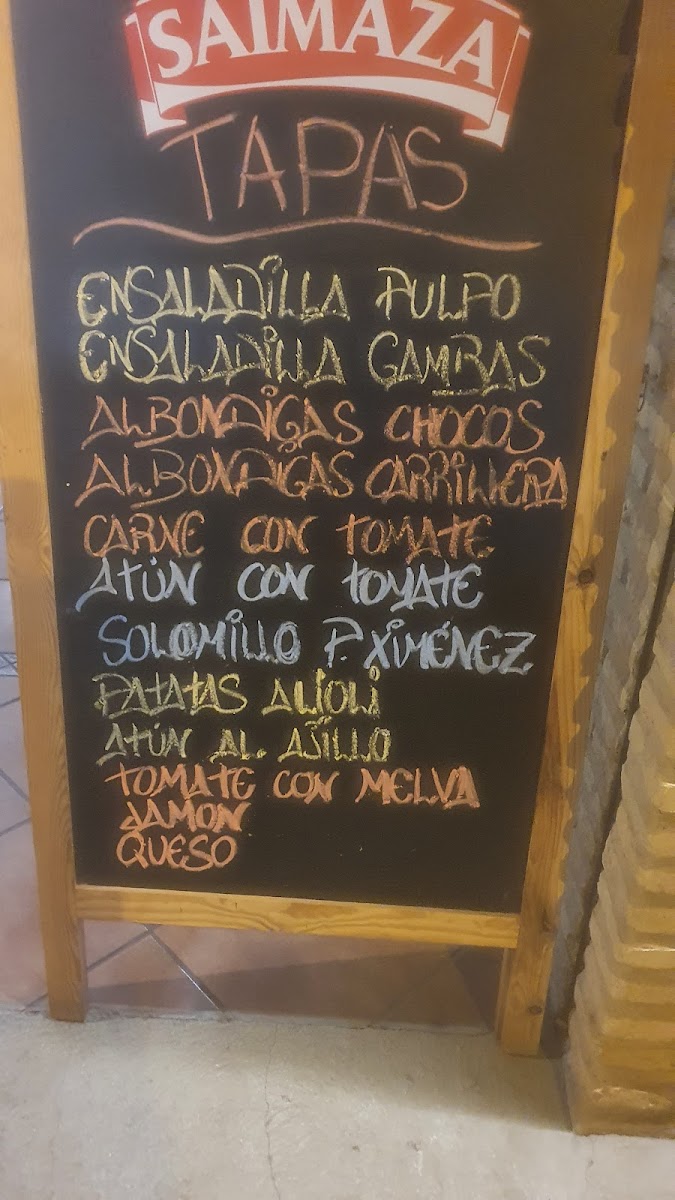 SAIMAZA
TAPAS
ENSALADILLA PULPO
ENSALADILLA GAMBAS
ALBONDIGAS CHOCOS
ALBONDIGAS CARRILLERA
CARNE CON TOMATE
ATÚN CON TOMATE
SOLOMILLO P. XIMÉNEZ
PATATAS ALIOLI
ATÚN AL AJILLO
TOMATE CON MELVA
JAMÓN
QUESO